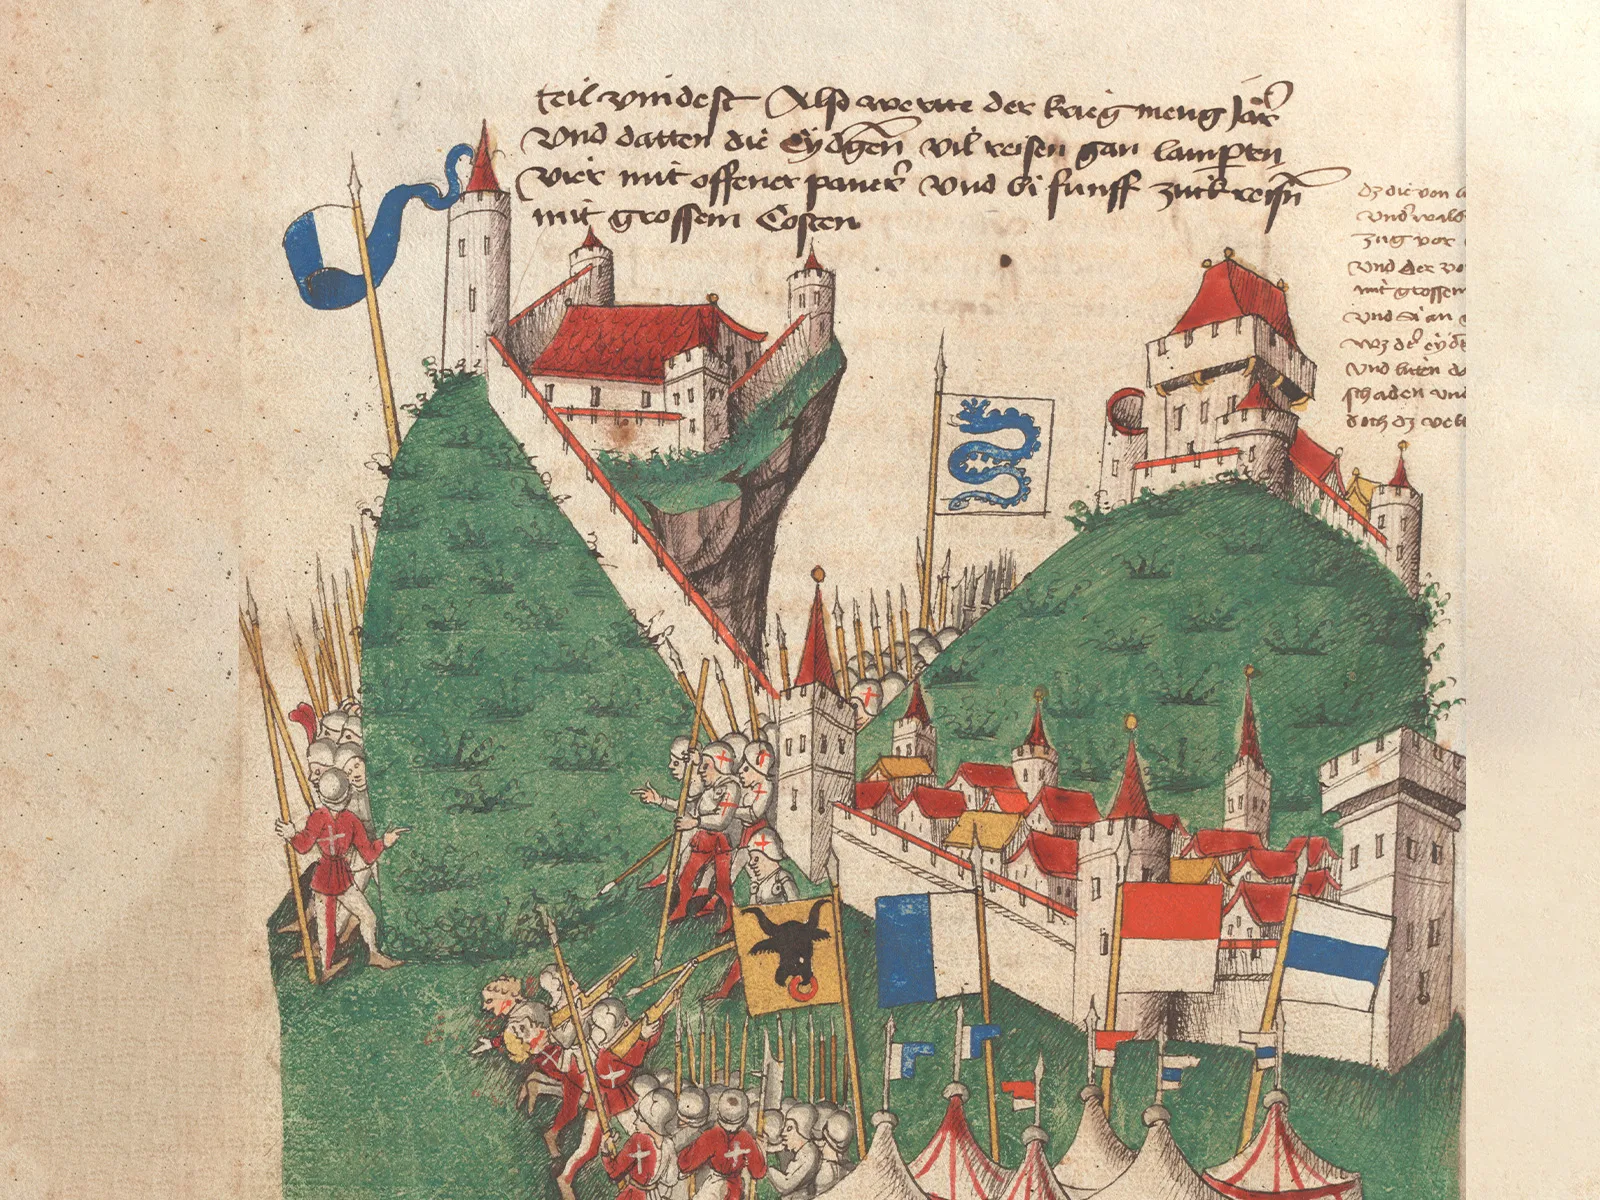 teil vnidest Also werete der krieg meng Jar
Vnd datten die Eydgen vil reisen gan lamparten
vier mit offener paner Vnd bi funff zuk reisen
mit grossem Costen
dz die von
Vnd wald
Zug vor
Vnd der vo
mit grossem
Vnd si an
wz der eydt
Vnd litten da
schaden vnd
doch dz